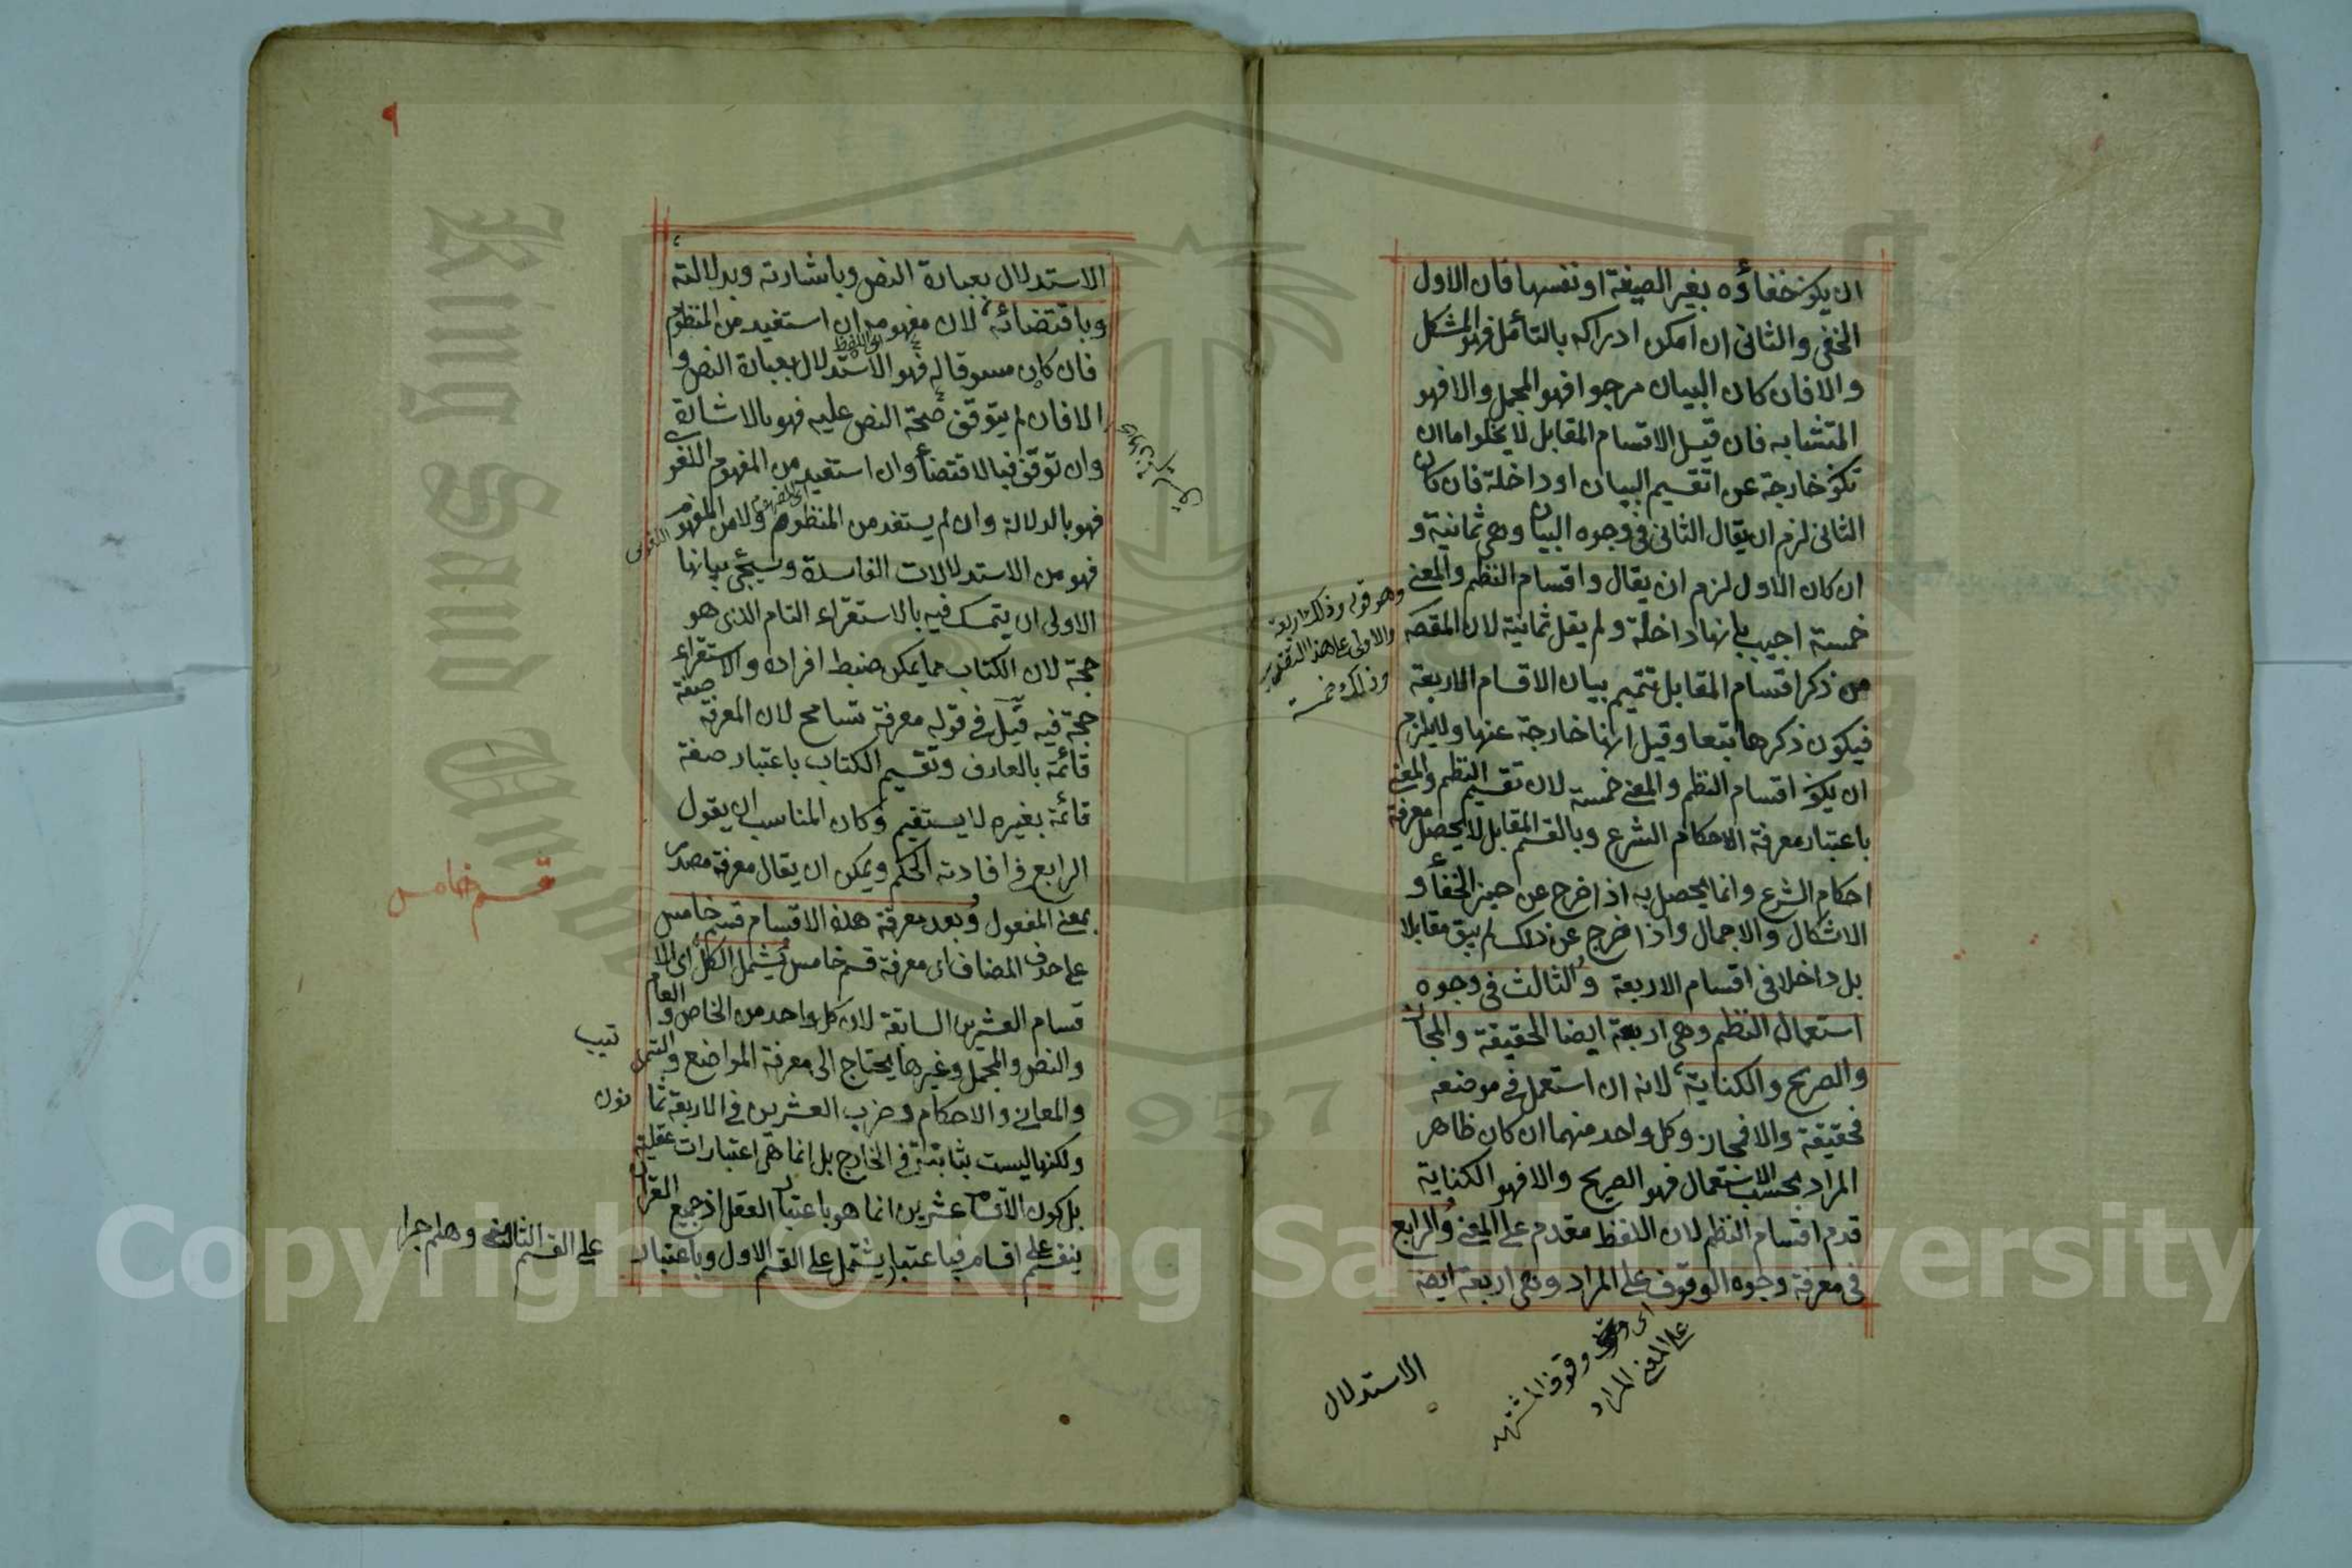 ان يكون خفاؤه بغير الصيغة او نفسها فان الاول
الخفي والثاني ان امكن ادراكه بالتأمل فهو المشكل
والا فان كان البيان مرجوا فهو المجمل والا فهو
المتشابه فان قيل الاقسام المقابل لا يخلوا اما ان
تكون خارجة عن اتقسيم البيان او داخلة فان كان
الثاني لزم ان يقال الثاني في وجوه البيان وهي ثمانية و
ان كان الاول لزم ان يقال واقسام النظم والمعنى
خمسة اجيب بانها داخلة ولم يقل ثمانية لان المقصد
من ذكر اقسام المقابل تتميم بيان الاقسام الاربعة
فيكون ذكرها تبعا وقيل انها خارجة عنها ولا يلزم
ان يكون اقسام النظم والمعنى خمسة لان تقسيم النظم والمعنى
باعتبار معرفة الاحكام الشرع وبالقسم المقابل لا يحصل معرفة
احكام الشرع وانما يحصل به اذا خرج عن حيز الخفأ و
الاشكال والاجمال واذا خرج عن ذلك لم يبق مقابلا
بل داخلا في اقسام الاربعة والثالث في وجوه
استعمال النظم وهي اربعة ايضا الحقيقة والمجاز
والصريح والكناية لانه ان استعمل في موضعه
فحقيقة والا فمجاز وكل واحد منهما ان كان ظاهر
المراد بحسب الاستعمال فهو الصريح والا فهو الكناية
قدم اقسام النظم لان اللفظ مقدم على المعنى والرابع
في معرفة وجوه الوقوف على المراد وهي اربعة ايضا
وهو قوله وذلك اربعة
والاولى على هذا التقدير
وذلك خمسة
اى وقوف المشتهد
على المعنى المراد
الاستدلال
٩
الاستدلال بعبارة النص وباشارته وبدلالته
وباقتضائه لان مفهومه ان استفيد من المنظوم
فان كان مسوقا له فهو الاستدلال بعبارة النص و
الا فان لم يتوقف صحة النص عليه فهو بالاشارة
وان توقف فبالاقتضأ وان استفيد من المفهوم اللغو
فهو بالدلالة وان لم يستفد من المنظوم ولا من المفهوم
اللغوى
فهو من الاستدلالات الفاسدة وسيجئ بيانها
الاولى ان يتمسك فيه بالاستقراء التام الذى هو
حجة لان الكتاب مما يمكن ضبط افراده والاستقراء
حجة فيه قيل في قوله معرفة تسامح لان المعرفة صفة
قائمة بالعارف وتقسيم الكتاب باعتبار صفة
قائمة بغيره لا يستقيم وكان المناسب ان يقول
الرابع في افادته الحكم ويمكن ان يقال معرفة مصدر
بمعنى المفعول وبعد معرفة هذه الاقسام قسم خامس
على حذف المضاف اى معرفة قسم خامس يشمل الكل اى الا
قسام العشرين السابقة لان كل واحد من الخاص والعام
والنص والمجمل وغيرها يحتاج الى معرفة المواضع والتر
تيب
والمعاني والاحكام وضرب العشرين في الاربعة ثما
نون
ولكنها ليست بثابتة في الخارج بل انما هي اعتبارات عقلية
بل كون الاقسام عشرين انما هو باعتبار العقل اذ جميع القرآن
ينقسم على اقسام فباعتبار يشتمل على القسم الاول وباعتبار
على القسم الثاني وهلم جرا
قسم خامس
Copyright © King Saud University
King Saud University
1957